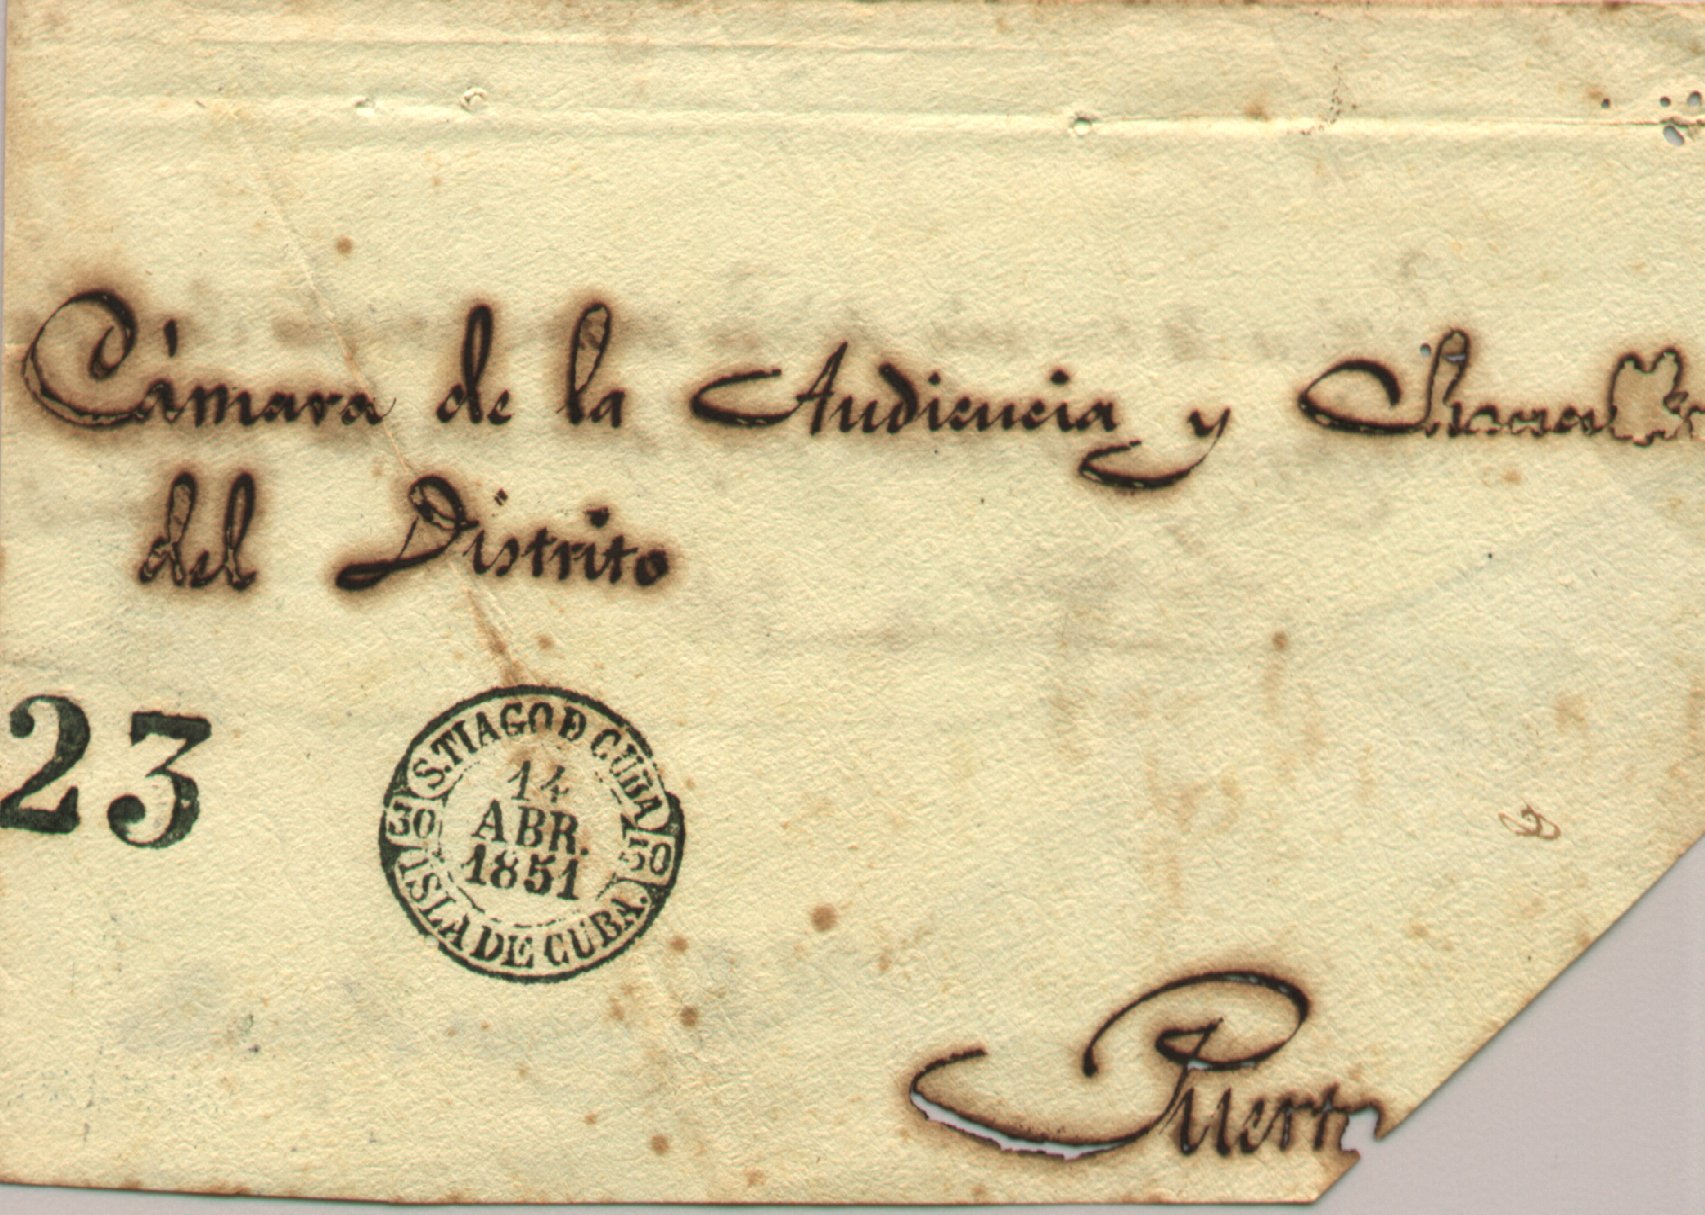 Cámara de la Audiencia y
del Distrito
23
S.TIAGO D CUBA
14
ABR.
1851
30
50
ISLA DE CUBA.
Puerto